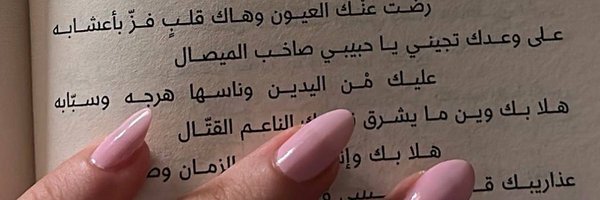 رضت عنك العيون وهاك قلبٍ فزّ بأعشابه
على وعدك تجيني يا حبيبي صاخب الميصال
عليك مْن اليدين وناسها هرجه وسبّابه
هلا بك وين ما يشرق الناعم القتّال
هلا بك الزمان
عذاريبك